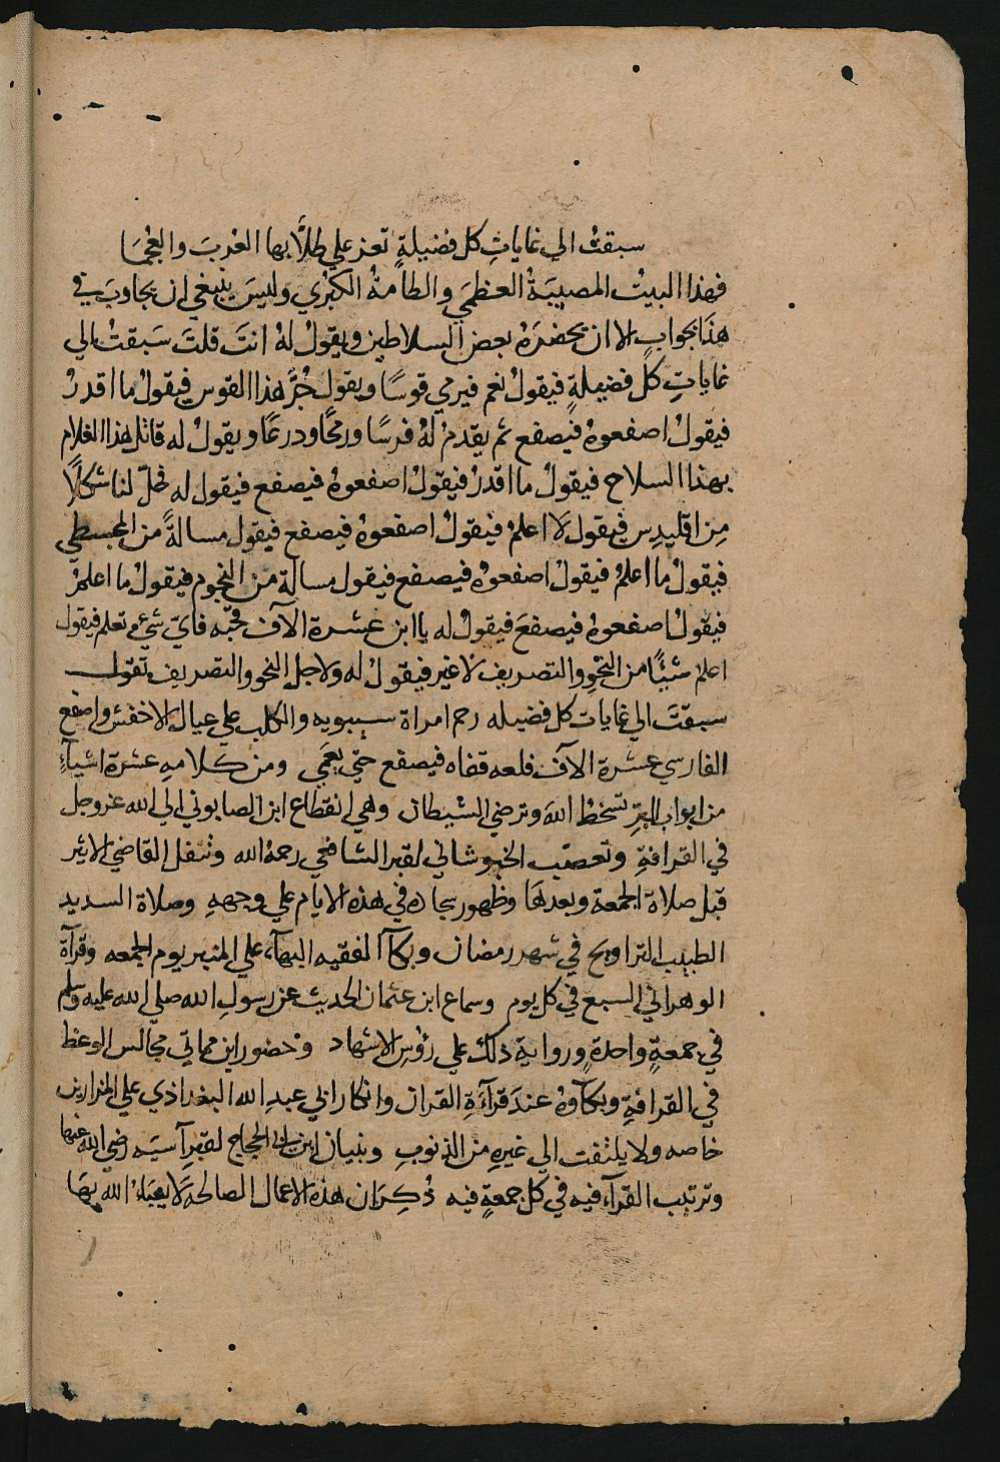 سبقتُ الي غاياتِ كل فضيلةٍ تعز علي طلّابها العُربَ والعُجمَا
فهذا البيتُ المصيبَةُ العظمَي والطامةُ الكبرَي وليسَ ينبغي ان يجاوبَ في
هذَا بجوابٍ الا ان يحضرَهُ بعض السلاطين ويقولُ لهُ انتَ قلتَ سَبقتُ الي
غاياتِ كل فضيلةٍ فيقولُ نعم فيرمي قوسًا ويقول جُرَّ هذا القوس فيقولُ ما اقدرُ
فيقولُ اصفعوهُ فيصفع ثم يقدمُ لهُ فرسًا ورمحًا ودرعًا ويقولُ له قاتل هذا الغلام
بهذا السلاح فيقولُ ما اقدرُ فيقولُ اصفعوهُ فيصفع فيقول له فحلّ لنا شكلًا
مِن اقليدِس فيقول لا اعلمُ فيقولُ اصفعوهُ فيصفع فيقول مسالةً من المجسطي
فيقولُ ما اعلمُ فيقولُ اصفعوهُ فيصفع فيقول مسالة من النجوم فيقولُ ما اعلمُ
فيقولُ اصفعوهُ فيصفعَ فيقولُ له يا ابن عشرة الآف قحبه فايّ شيءٍ تعلم فيقول
اعلم شيًا من النحوِ والتصريف لا غير فيقولُ له ولاجل النحو والتصريف تقول
سبقتَ الي غايات كل فضيله رحم امراة سيبويه والكلب علي عيال الاخفش واصفع
الفارسي عشرة الآف قلعه قفاه فيصفع حتي يعمَي ومن كلامهِ عشرة اشيآءٍ
من ابواب البرِّ تسخطُ اللهَ وترضي الشيطان وهي انقطاع ابن الصابوني الي الله عز وجل
في القرافةِ وتعصّب الخبوشاني لقبر الشافعي رحمهُ الله وتنفل القاضي الاثير
قبل صلاة الجمعة وبعدهَا وظهور سجاده في هذه الايام علي وجههِ وصلاة السديد
الطبيب التراويح في شهر رمضان وبكآ الفقيه البهآء علي المنبر يوم الجمعه وقرآة
الوهراني السبع في كل يوم وسماع ابن عثمان الحديث عن رسولِ الله صلي الله عليه وسلم
في جمعةٍ واحدةٍ ورواية ذلك علي رؤسِ الاشهاد وحضور ابن مماتي مجالس الوعظ
في القرافةِ وبكآوهُ عندَ قرآءَةِ القران وانكار ابي عبدِ الله البغداذي علي المنراريين
خاصه ولا يلتفت الي غيرهِ من الذنوبِ وبنيان ابن ابي الحجاج لقبر آسيَه رضي الله عنها
وترتيب القرآء فيه في كل جمعةٍ فيه ذُكِرَ ان هذه الاعمال الصالحة لا يعبَاءُ اللهُ بهَا